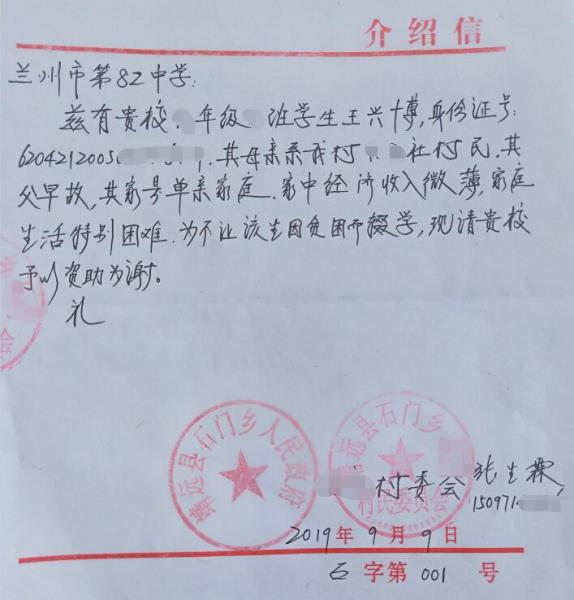 介绍信
兰州市第82中学:
兹有贵校 年级 班学生王兴博,身份证号:
6204212005 ,其母亲系我村 社村民.其
父早故,其家号单亲家庭.家中经济收入微薄,家庭
生活特别困难.为不让该生因贫困而辍学,现请贵校
予以资助为谢。
礼
靖远县石门乡人民政府
靖远县石门乡
村民委员会
村委会 张生霖
150971
2019年9月9日
石字第001号